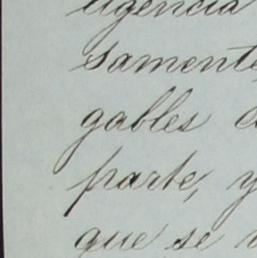 ligencia
samente
gables
parte, y
que se